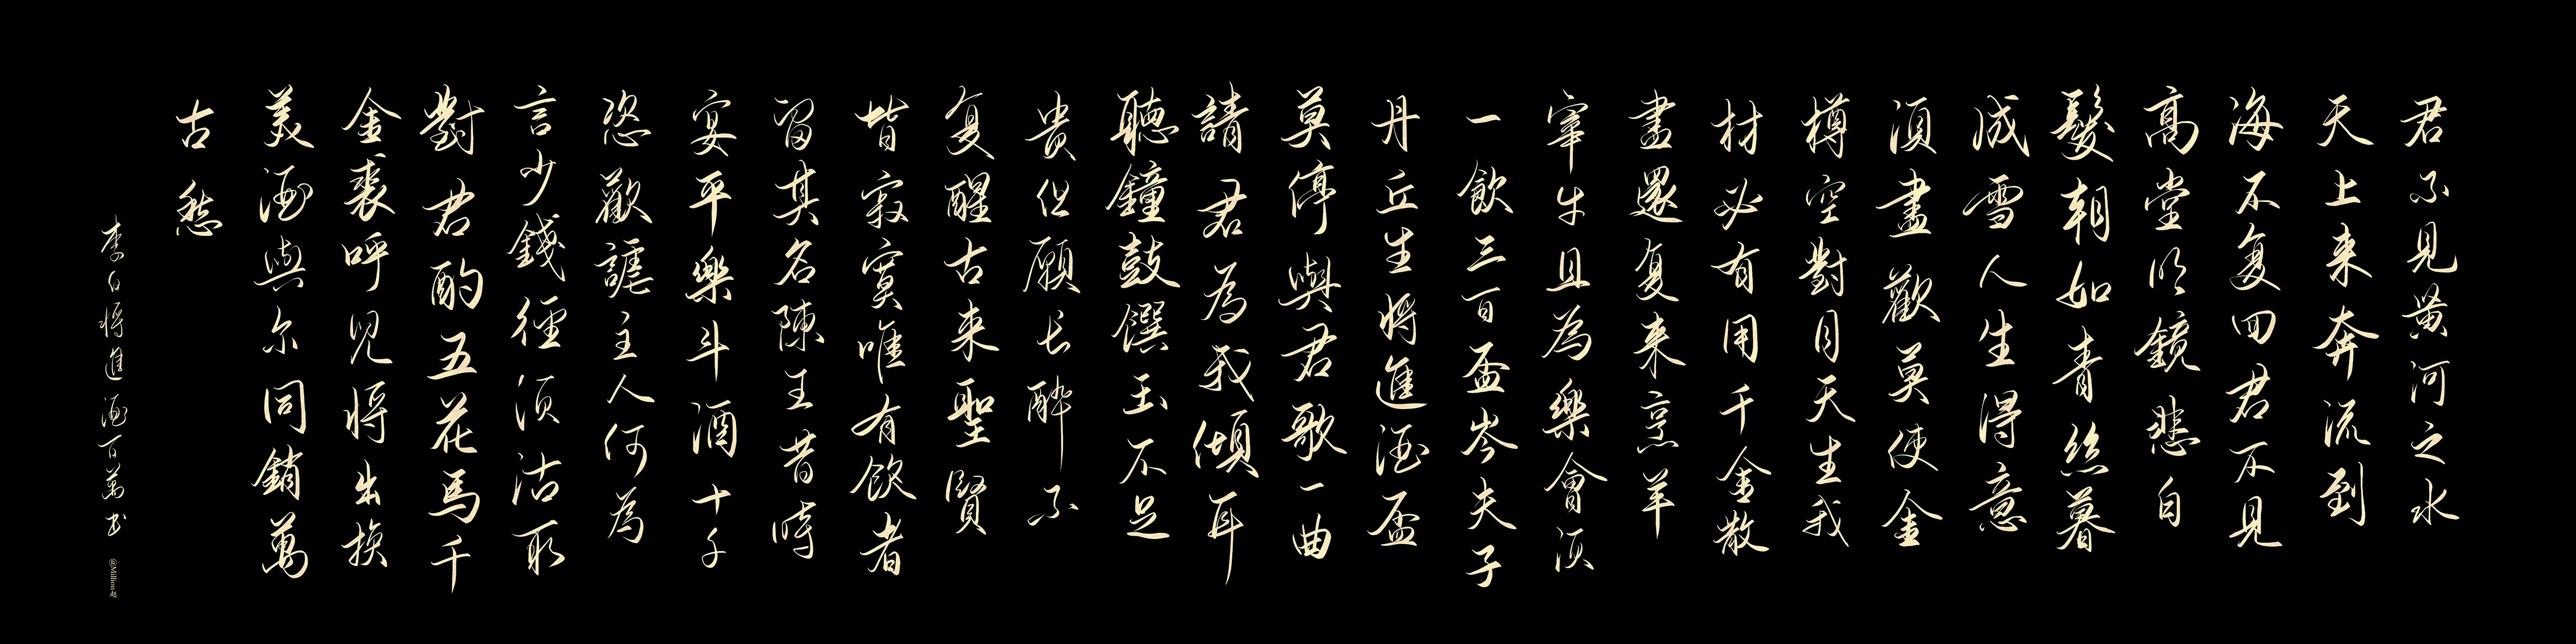 君不見黄河之水
天上来奔流到
海不复回君不見
高堂明鏡悲白
髮朝如青絲暮
成雪人生得意
須盡歡莫使金
樽空對月天生我
材必有用千金散
盡還复来烹羊
宰牛且為樂會須
一飲三百盃岑夫子
丹丘生將進酒盃
莫停與君歌一曲
請君為我傾耳
聽鐘鼓馔玉不足
贵但願长醉不
复醒古来聖賢
皆寂寞唯有飲者
留其名陳王昔時
宴平樂斗酒十千
恣歡謔主人何為
言少錢徑須沽取
對君酌五花馬千
金裘呼兒將出换
美酒與尔同銷萬
古愁
李白將進酒百萬书
@Million